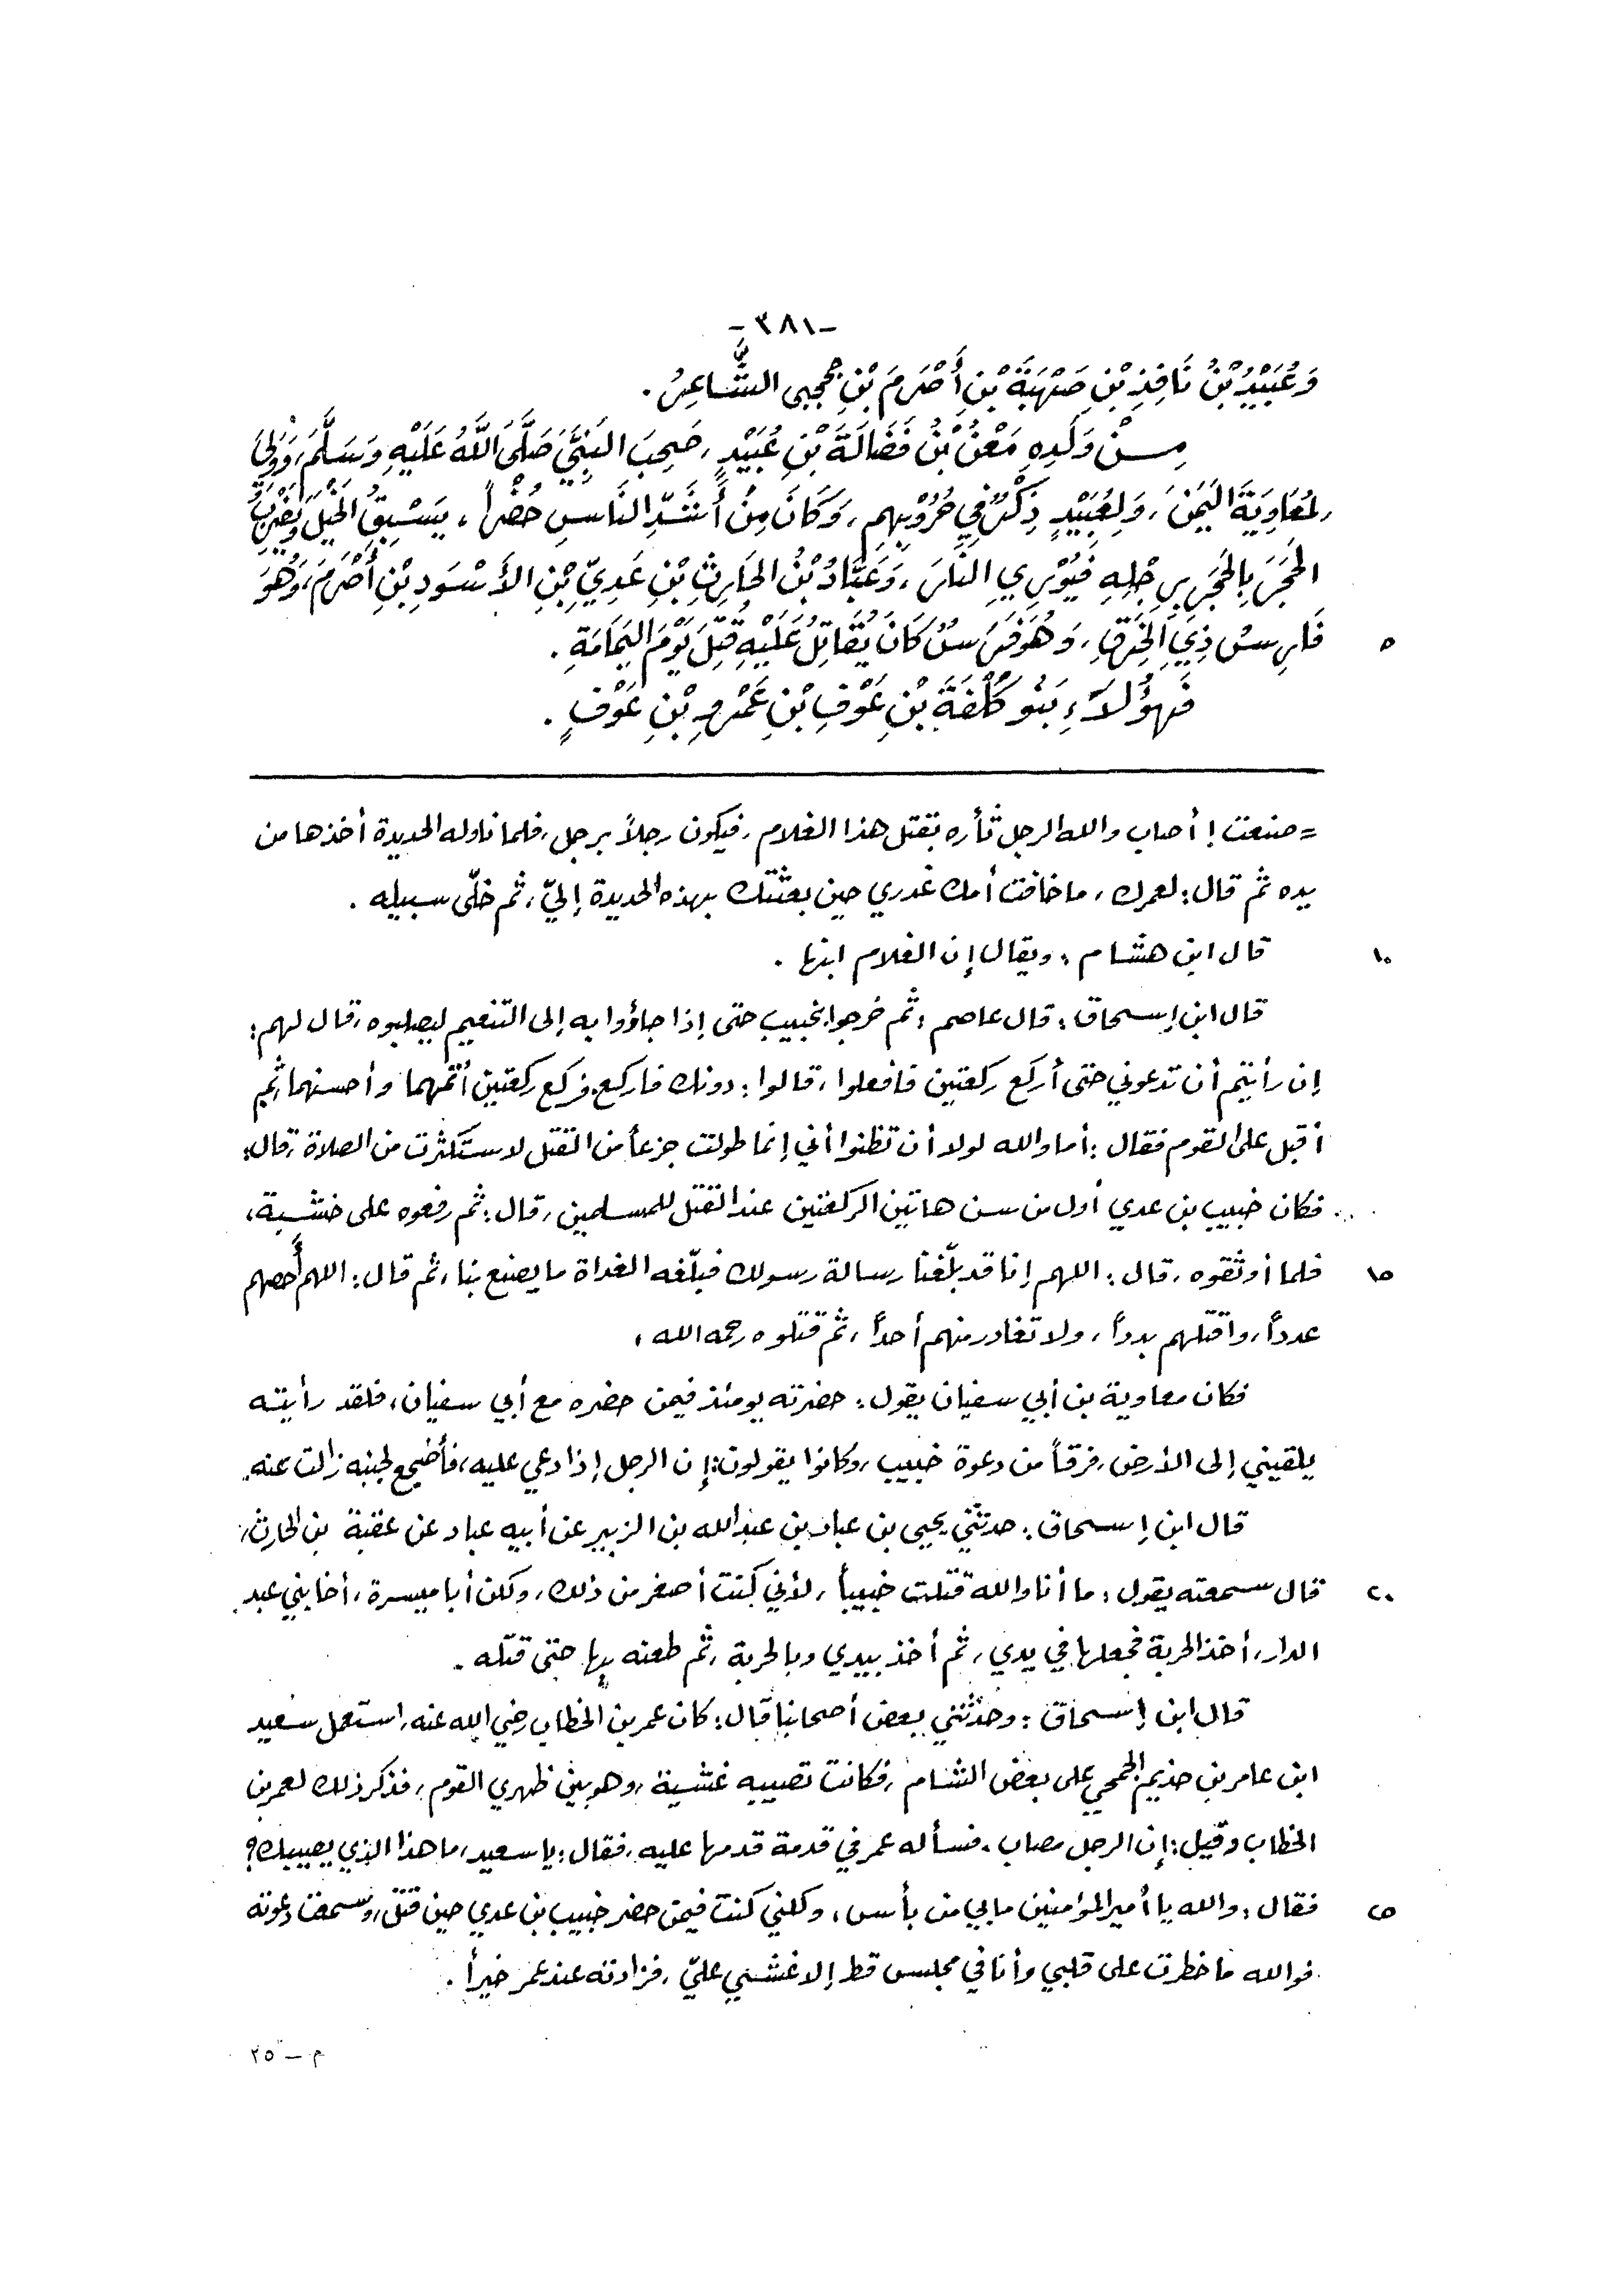 -٣٨١-
وَعُبَيْدُ بْنُ نَافِذِ بْنِ صَهْبَةَ بْنِ أَصْرَمَ بْنِ جحجبى الشَّاعِرُ.
مِنْ وَلَدِهِ مَعْنُ بْنُ فَضَالَةَ بْنِ عُبَيْدٍ، صَحِبَ النَبِيَّ صَلَّى اللَّهُ عَلَيْهِ وَسَلَّمَ، وَوَلِيَ
لِمُعَاوِيَةَ اليَمَنَ، وَلِعُبَيْدٍ ذِكْرٌ فِي حُرُوْبِهِم، وَكَانَ مِنْ أَشَدِّ النَاسِ حُضْراً، يَسْبِقُ الخَيْلَ وَيَضْرِبُ
الحَجَرَ بِالحَجَرِ بِرِجْلِهِ فَيُوْرِي النَارَ، وَعَبَّادُ بْنُ الحَارِثِ بْنِ عَدِيِّ بْنِ الأَسْوَدِ بْنِ أَصْرَمَ، وَهُوَ
٥ فَارِسُ ذِي الخِرَقِ، وَهُوَ فَرَسٌ كَانَ يُقَاتِلُ عَلَيْهِ قُتِلَ يَوْمَ اليَمَامَةِ.
فَهؤُلاَءِ بَنُو كُلْفَةَ بْنِ عَوْفِ بْنِ عَمْرِو بْنِ عَوْفٍ.
= صنعت! أصاب والله الرجل ثأره بقتل هذا الغلام، فيكون رجلاً برجل، فلما ناوله الحديدة أخذها من
يده ثم قال: لعمرك، ما خافت أمك غدري حين بعثتك بهذه الحديدة إليّ، ثم خلّى سبيله.
١٠ قال ابن هشام: ويقال إن الغلام ابنها.
قال ابن إسحاق: قال عاصم: ثم خرجوا بخبيب حتى إذا جاؤوا به إلى التنعيم ليصلبوه، قال لهم:
إن رأيتم أن تدعوني حتى أركع ركعتين فافعلوا، قالوا: دونك فاركع، فركع ركعتين أتمهما وأحسنهما، ثم
أقبل على القوم فقال: أما والله لولا أن تظنوا أني إنما طولت جزعاً من القتل لاستكثرت من الصلاة، قال:
فكان خبيب بن عدي أول من سن هاتين الركعتين عند القتل للمسلمين، قال: ثم رفعوه على خشبة،
١٥ فلما أوثقوه، قال: اللهم إنا قد بلّغنا رسالة رسولك فبلّغه الغداة ما يصنع بنا، ثم قال: اللهم أحصهم
عدداً، واقتلهم بدداً، ولا تغادر منهم أحداً، ثم قتلوه رحمه الله،
فكان معاوية بن أبي سفيان يقول: حضرته يومئذ فيمن حضره مع أبي سفيان، فلقد رأيته
يلقيني إلى الأرض، فرقاً من دعوة خبيب، وكانوا يقولون: إن الرجل إذا دعي عليه، فأضجع لجنبه زالت عنه.
قال ابن إسحاق: حدثني يحيى بن عباد بن عبدالله بن الزبير عن أبيه عباد عن عقبة بن الحارث،
٢٠ قال سمعته يقول: ما أنا والله قتلت خبيباً، لأني كنت أصغر من ذلك، ولكن أبا ميسرة، أخا بني عبد
الدار، أخذ الحربة فجعلها في يدي، ثم أخذ بيدي وبالحربة، ثم طعنه بها حتى قتله.
قال ابن إسحاق: وحدثني بعض أصحابنا قال: كان عمر بن الخطاب رضي الله عنه، استعمل سعيد
ابن عامر بن حذيم الجمحي على بعض الشام، فكانت تصيبه غشية، وهو بين ظهري القوم، فذكر ذلك لعمر بن
الخطاب وقيل: إن الرجل مصاب، فسأله عمر في قدمة قدمها عليه، فقال: يا سعيد، ما هذا الذي يصيبك؟
٢٥ فقال: والله يا أمير المؤمنين ما بي من بأس، ولكني كنت فيمن حضر خبيب بن عدي حين قتل، وسمعت دعوته
فوالله ما خطرت على قلبي وأنا في مجلس قط إلا غشي عليّ، فزادته عند عمر خيراً.
م - ٢٥